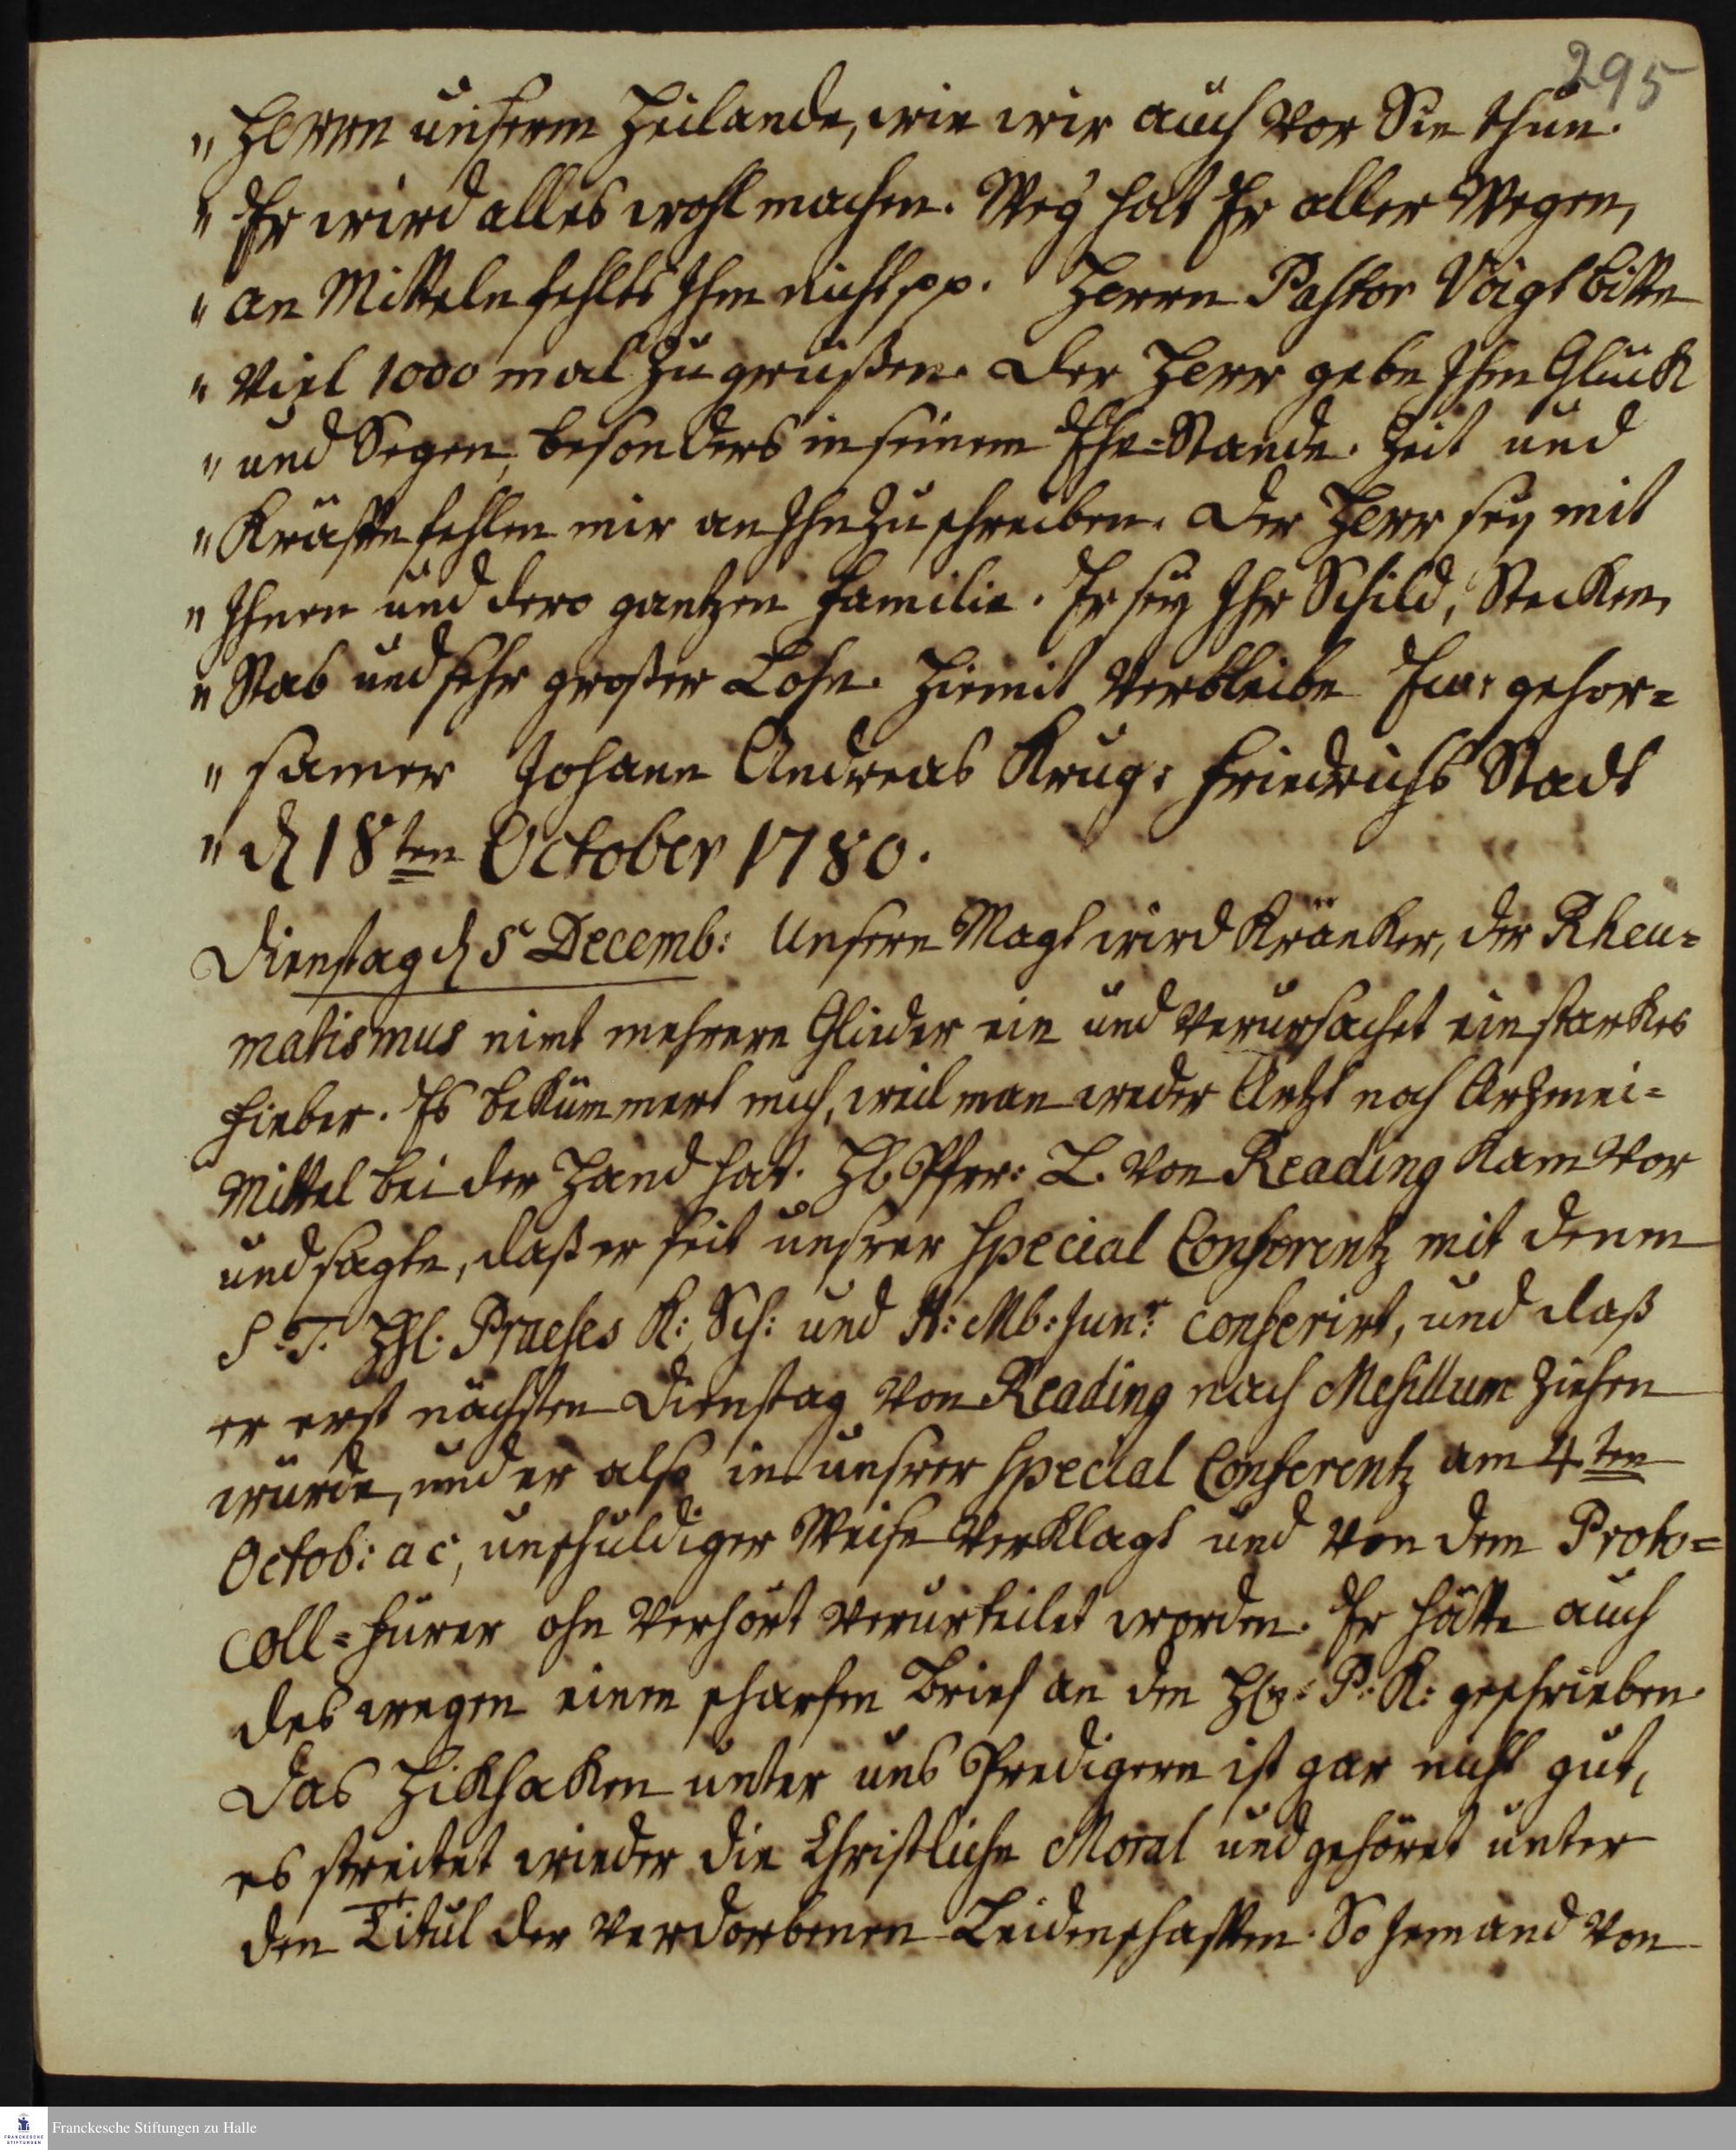 295
" HErrn unserm Heilande, wie wir auch vor Sie thun.
" Er wird alles wohl machen. Weg' hat Er aller Wegen,
" an Mitteln fehlts Ihm nicht pp. Herrn Pastor Voigt bitte
" viel 1000 mal zu grüßen. Der Herr gebe Ihm Glück
" und Segen, besonders in seinem Ehe=Stande. Zeit und
" Kräffte fehlen mir an Ihn zu schreiben. Der Herr sey mit
" Ihnen und dero gantzen Familie. Er sey Ihr Schild, Stecken,
" Stab und sehr großer Lohn. Hiemit verbleibe Ew: gehor=
" samer Johann Andreas Krug: Friedrichs Stadt
" d 18ten October 1780.
Dienstag d 5 Decemb: Unsere Magt wird kränker, der Rheu=
matismus nimt mehrere Glieder ein und verursachet ein starkes
Fieber. Es bekümmert mich, weil man weder Artzt noch Arzenei=
Mittel bei der Hand hat. HE Pfr: L. von Reading kam vor
und sagte, daß er seit unsrer special Conferentz mit denen
S. T. HhE. Praeses K: Sch: und H: Mb: Junr: conferirt, und daß
er erst nächsten Dienstag von Reading nach Mesillum ziehen
würde, und er also in unsrer special Conferentz am 4ten
Octob: a c, unschuldiger Weise verklagt und von dem Proto=
coll=fürer ohn verhört verurteilet worden. Er hätte auch
des wegen einen scharfen Brief an den HEn: P: K: geschrieben.
Das Zikhaken unter uns Predigern ist gar nicht gut,
es streitet wieder die Christliche Moral und gehöret unter
den Titul der verdorbenen Leidenschafften. So jemand von
Franckesche Stiftungen zu Halle